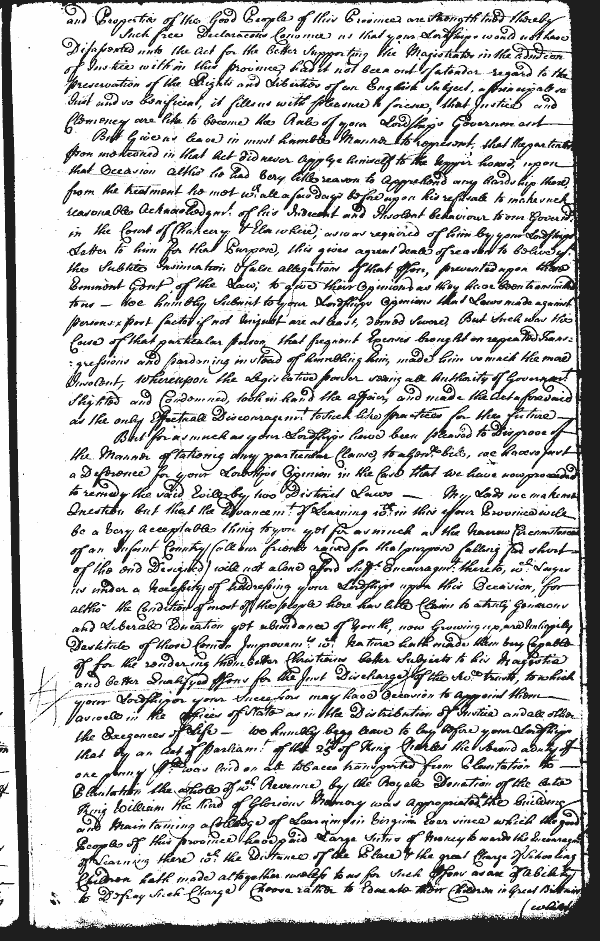 and Properties of the Good People of this Province are strengthened thereby
Such free Declaracons Convince us that your Lordships would not have
Disasented unto the Act for the better Supporting the Magistrates in the
of Justice with in this province had it not been out of a tender regard to the
preservation of the Rights and Liberties of an English Subject, a principale so
Just and so benificiat, it fills us with pleasure to foresee, that Justice and
Clemency are like to become the Rule of your Lordships Governm.t
But Give us leave in most humble Manner to represent, that the particular
person menconed in that Act did never Applye himself to the upper house, upon
that Occasion altho he had very little reason to Apprehend any hardship there
from the treatment he met w.th all a few days before upon his refusall to make such
reasonable Acknowledgm.t of his Indecent and Insolent behaviour to our Govern.r
in the Court of Chancery & Elsewhere as was required of him by your Lordships
Letter to him for that Purpose, this gives a great deale of reason to believe
the Subtile Insinuation & false allegations of that person, prevented upon those
Emminent Gent of the Law, to give their Opinions as they have been transmitted
to us — We humbly Submit to your Lordships Opinions that Laws made against
persons x post facto if not Unjust are at least, deemed Severe, But Such was the
Case of that particular person that frequent Lycenses brought on repeated Trans=
=gressions and pardoning instead of humbling him, made him so much the more
Insolent, Whereupon the Legislative power seeing all Authority of Governm.t
Slighted and Contemned, took in hand the affair, and made the Act aforesaid
as the only Effectuall Discouragem.t to Such like practices for the future —
But for as much as your Lordships have been pleased to Disprove of
the Manner of Stationing any particular Clause, to a , we have so just
a Defference for your Lordships Opinion in the Case that we have now proceeded
to remedy the said Evills by two Distinct Laws — My Lords we make no
Question but that the Advancem.t of Learning w.th in this your Province will
be a very acceptable thing to you yet for as much as the Narrow Circumstances
of an Infant County (all our friends raised for that purpose falling far short
of the end Designed) will not alone afford Suff.t Encouragm.t thereto, w.ch Layes
us under a Necessity of Addressing your Lordships upon this Occasion, for
altho the Condition of most of the people here has little Claim to a truly Generous
and Liberale Education yet abundance of Youth, now Growing up, are Unhappily
Destitute of those Comon Improvem.ts w.ch Nature hath made them very Capable
of for the rendering them better Christians better Subjects to his Magestie
and better Qualifyed persons for the Just Discharge of the Sev.ll trusts, to which
your Lordships or your Successors may have Occasion to appoint them
as well in the Offices of State as in the Distribution of Justice and all other
the Exegences of Life — We humbly begg leave to lay before your Lordships
that by an Act of Parliam.t of the 25 of King Charles the Second a duty of
one penny was laid on all tobacco transported from Plantation to
Plantation the whole of w.ch Revenue, by the Royale Donation of the late
King William the third of Glorious Memory was Appropriated the building
and Maintaining a Colledge of Learning in Virginia Ever since which the good
People of this province have paid Large Sums of Money towards the Encouragem
of Learning there w.ch the Distance of the Place & the great Charge of Schooling
Children hath made altogether useless to us for Such persons as are of Ability
to Defray Such Charge Choose rather to Educate their Children in Great Brittain
(which